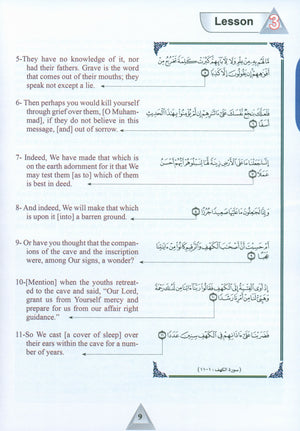 Lesson 3
5-They have no knowledge of it, nor
had their fathers. Grave is the word
that comes out of their mouths; they
speak not except a lie.
مَّا لَهُم بِهِ مِنْ عِلْمٍ وَلَا لِآبَائِهِمْ كَبُرَتْ كَلِمَةً تَخْرُجُ مِنْ
أَفْوَاهِهِمْ إِن يَقُولُونَ إِلَّا كَذِبًا
6- Then perhaps you would kill yourself
through grief over them, [O Muham-
mad], if they do not believe in this
message, [and] out of sorrow.
فَلَعَلَّكَ بَاخِعٌ نَّفْسَكَ عَلَى آثَارِهِمْ إِن لَّمْ يُؤْمِنُوا بِهَذَا الْحَدِيثِ
أَسَفًا
7- Indeed, We have made that which is
on the earth adornment for it that We
may test them [as to] which of them
is best in deed.
إِنَّا جَعَلْنَا مَا عَلَى الْأَرْضِ زِينَةً لَّهَا لِنَبْلُوَهُمْ أَيُّهُمْ أَحْسَنُ
عَمَلًا
8- And indeed, We will make that which
is upon it [into] a barren ground.
وَإِنَّا لَجَاعِلُونَ مَا عَلَيْهَا صَعِيدًا جُرُزًا
9- Or have you thought that the compan-
ions of the cave and the inscription
were, among Our signs, a wonder?
أَمْ حَسِبْتَ أَنَّ أَصْحَابَ الْكَهْفِ وَالرَّقِيمِ كَانُوا مِنْ آيَاتِنَا
عَجَبًا
10-[Mention] when the youths retreat-
ed to the cave and said, "Our Lord,
grant us from Yourself mercy and
prepare for us from our affair right
guidance."
إِذْ أَوَى الْفِتْيَةُ إِلَى الْكَهْفِ فَقَالُوا رَبَّنَا آتِنَا مِن لَّدُنكَ رَحْمَةً
وَهَيِّئْ لَنَا مِنْ أَمْرِنَا رَشَدًا
11-So We cast [a cover of sleep] over
their ears within the cave for a num-
ber of years.
فَضَرَبْنَا عَلَى آذَانِهِمْ فِي الْكَهْفِ سِنِينَ عَدَدًا
(سورة الكهف: ١-١١)
9